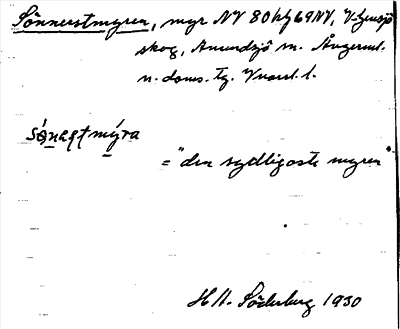 Sönnerstmyren, myr NV 80 hfg 69 NV, V-tjensjö
skog, Anundsjö sn. Ångerml.
n. doms. Tg.
sónastmýra
= "den sydligaste myren"
H A. Söderberg 1930